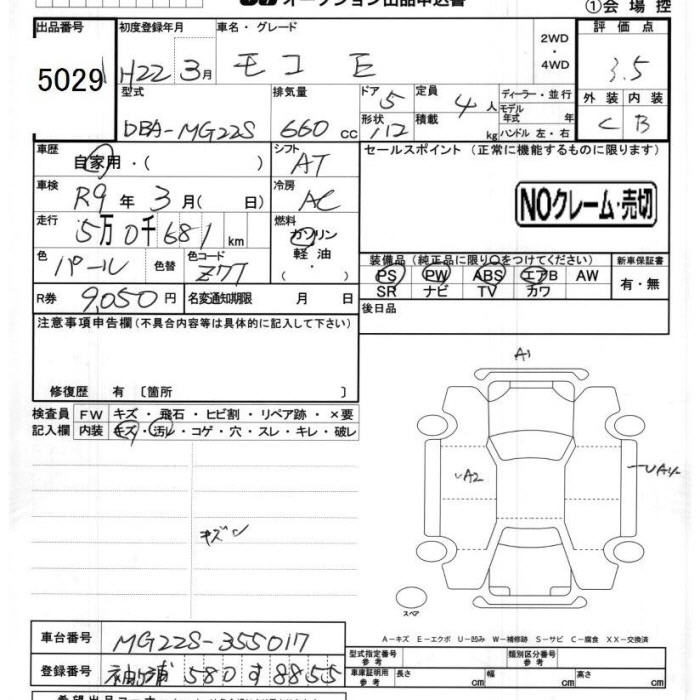 オークション出品申込書
①会場控
出品番号 初度登録年月 車名・グレード 2WD・4WD 評価点
5029 H22 3月 モコ E 3.5
型式 排気量 ドア 5 定員 4人 ディーラー・並行 外装 内装
DBA-MG22S 660 cc 形状 積載 kg モデル年式 年式 ハンドル 左・右 C B
車歴 自家用・( ) シフト AT セールスポイント (正常に機能するものに限ります)
車検 R9年 3月( 日) 冷房 AC NOクレーム・売切
走行 5万0千681km 燃料 ガソリン・軽油・( )
色 パール 色替 色コード Z7T 装備品(純正品に限り○をつけてください) 新車保証書
PS PW ABS エアB AW 有・無
SR ナビ TV カワ
R券 9,050円 名変通知期限 月 日 後日品
注意事項申告欄(不具合内容等は具体的に記入して下さい)
修復歴 有 〔箇所 〕
検査員 FW キズ・飛石・ヒビ割・リペア跡・×要
記入欄 内装 キズ・汚レ・コゲ・穴・スレ・キレ・破レ
A1
UA2
キズ
スペア
A-キズ E-エクボ U-凹み W-補修跡 S-サビ C-腐食 XX-交換済
車台番号 MG22S-355017 型式指定番号 参考 類別区分番号 参考
登録番号 袖ヶ浦 580 す 8855 車庫証明用 参考 長さ cm 幅 cm 高さ cm